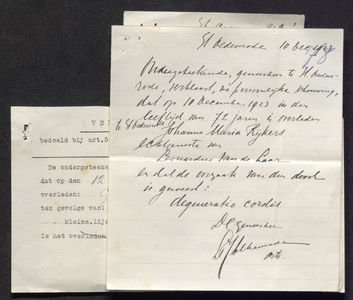 St Oedenrode 10 Dec 1923
Ondergeteekende, geneesheer te St Oeden-
rode, verklaart, na persoonlijke schouwing,
dat op 10 December 1923 in den
leeftijd van 72 jaren is overleden
te St Oedenrode Johanna Maria Rijkers
echtgenoote van
Leonardus van de Laar
en dat de oorzaak van den dood
is geweest:
degeneratio cordis
De geneesheer
arts.
bedoeld bij art.
De ondergeteeke
dat op den 12
overleden:
ten gevolge van:
kleine.lij
Is net overleden